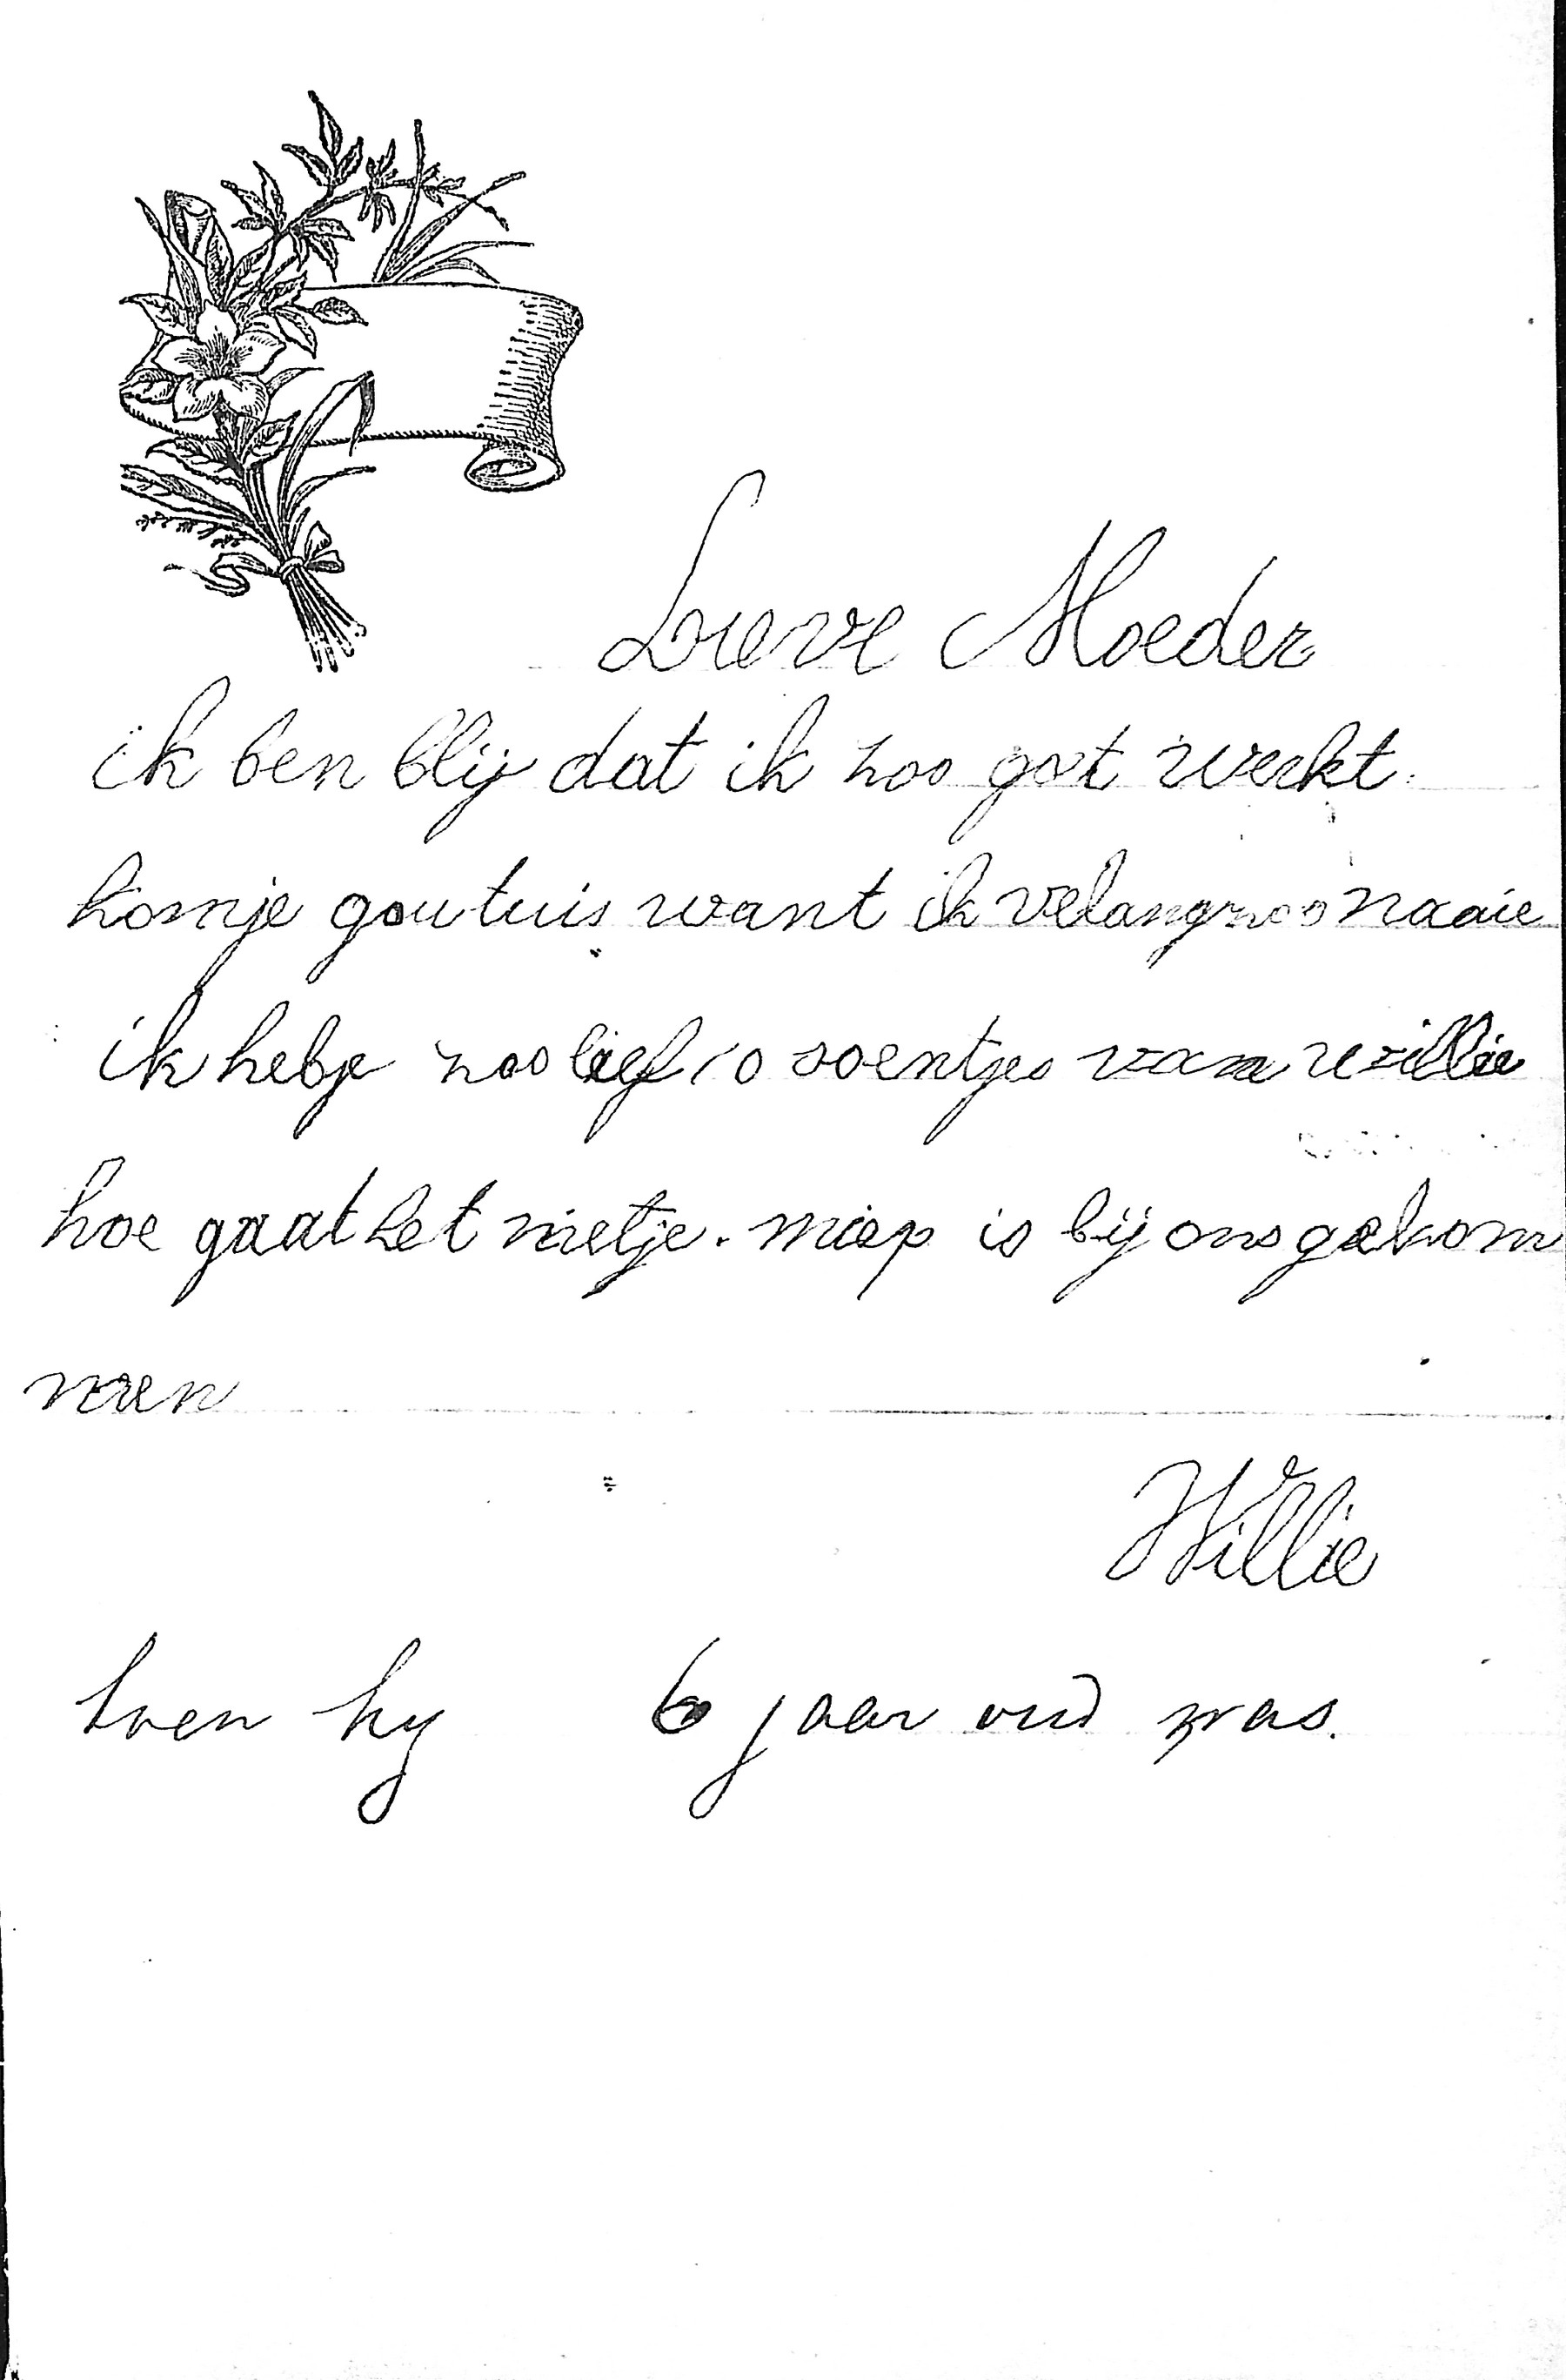 Lieve Moeder
ik ben blij dat ik zoo goet werkt.
komje gou tuis want ik velangzoo naaie
ik hebje zoo lief 10 soentjes van willie
hoe gaat het mietje. miep is bij ons gekom
men
Willie
toen hy 6 jaar oud was.